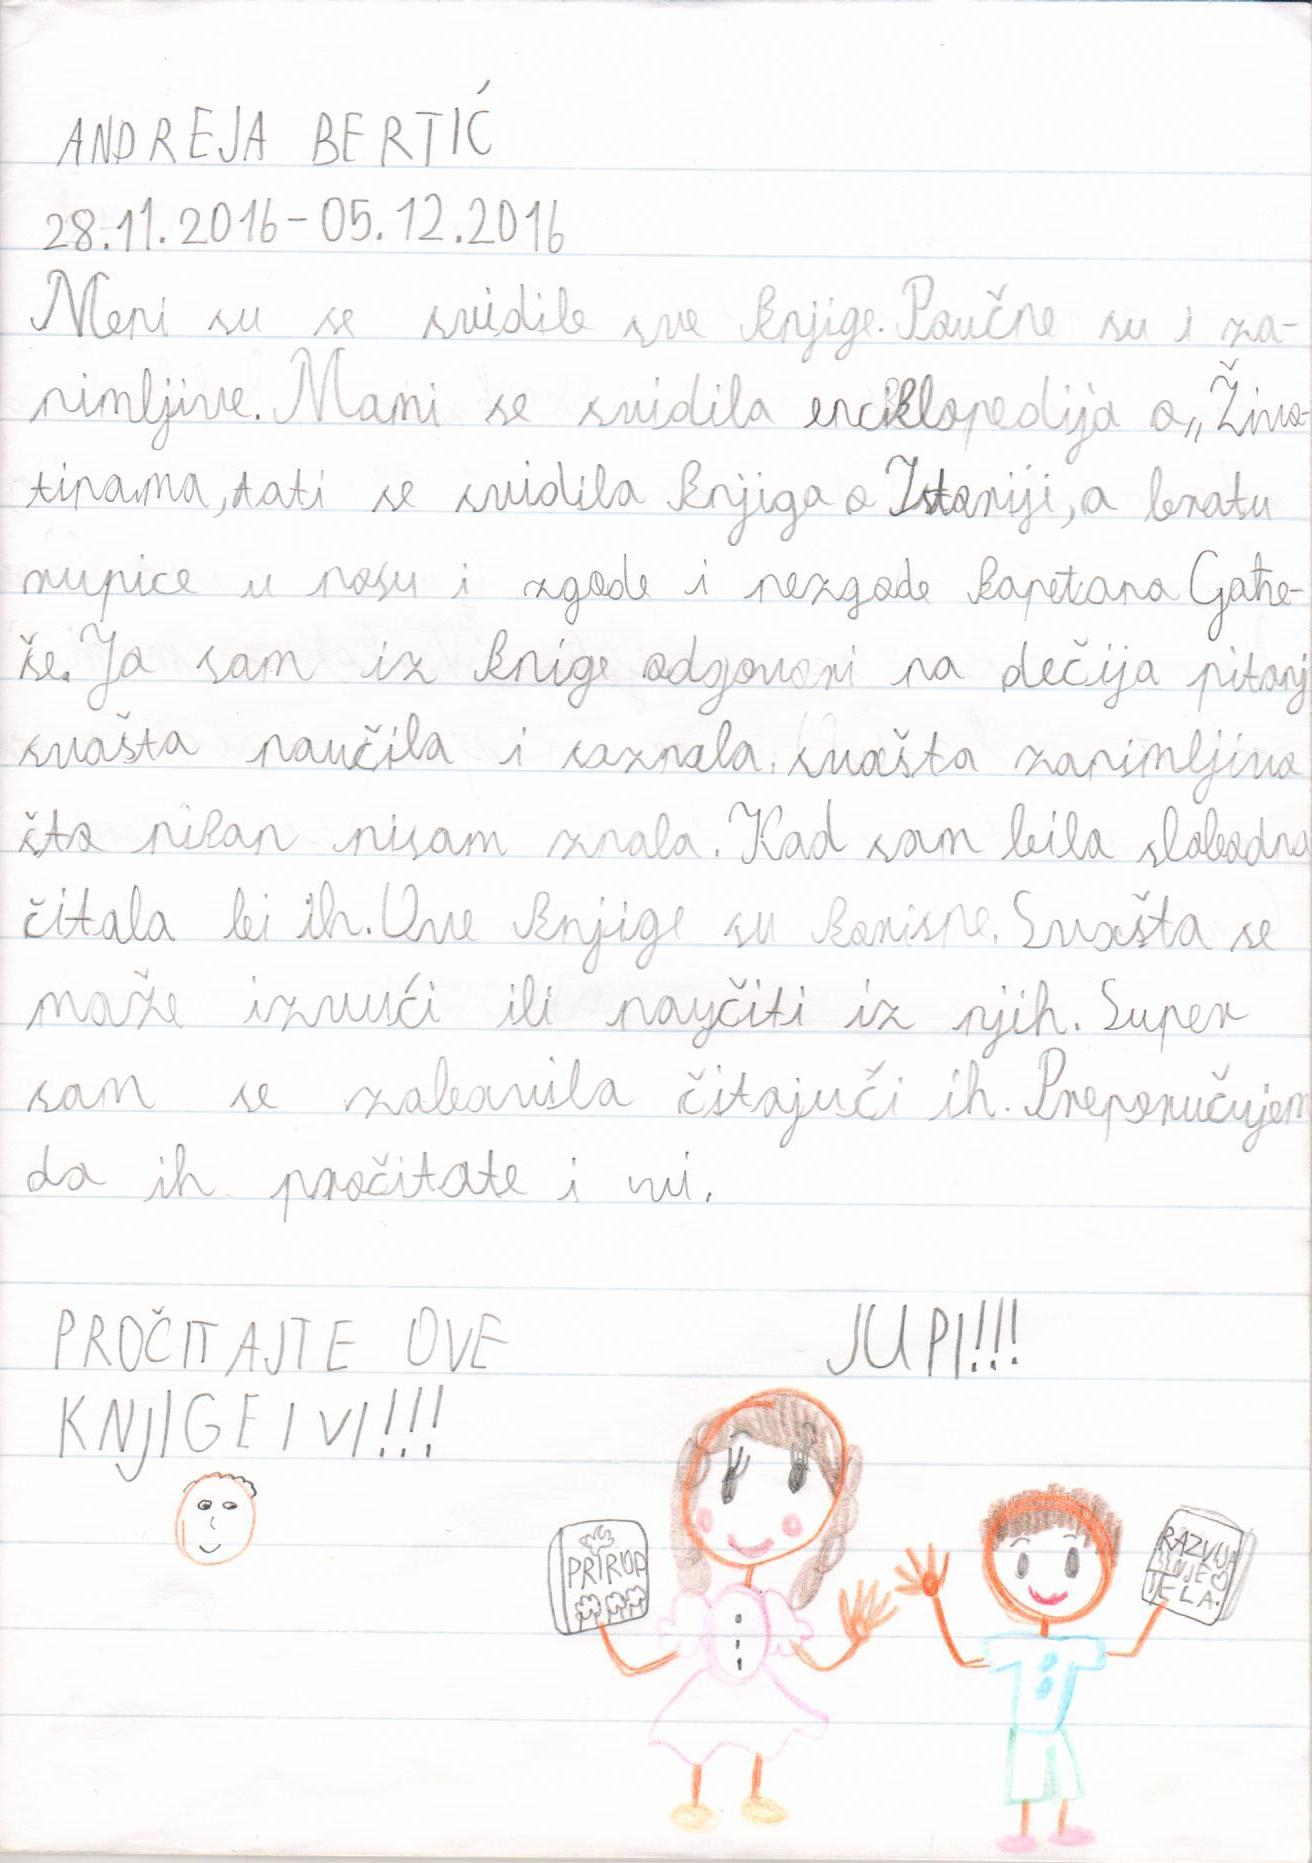 ANDREJA BERTIĆ
28.11.2016-05.12.2016
Meni su se svidile sve knjige. Poučne su i za-
nimljive. Mami se svidila enciklopedija o „Živo-
tinama, tati se svidila knjiga o Istoriji, a bratu
rupice u nosu i zgode i nezgode kapetana Gaće-
še. Ja sam iz knige odgovori na dečija pitanj
svašta naučila i saznala. svašta zanimljivo
što nikan nisam znala. Kad sam bila slobodna
čitala bi ih. Ove knjige su korisne. Svašta se
može izvući ili naučiti iz njih. Super
sam se zabavila čitajući ih. Preporučujem
da ih pročitate i vi.
PROČITAJTE OVE
JUPI!!!
KNJIGE I VI!!!
PRIROD
RAZVIJ
TJELA.